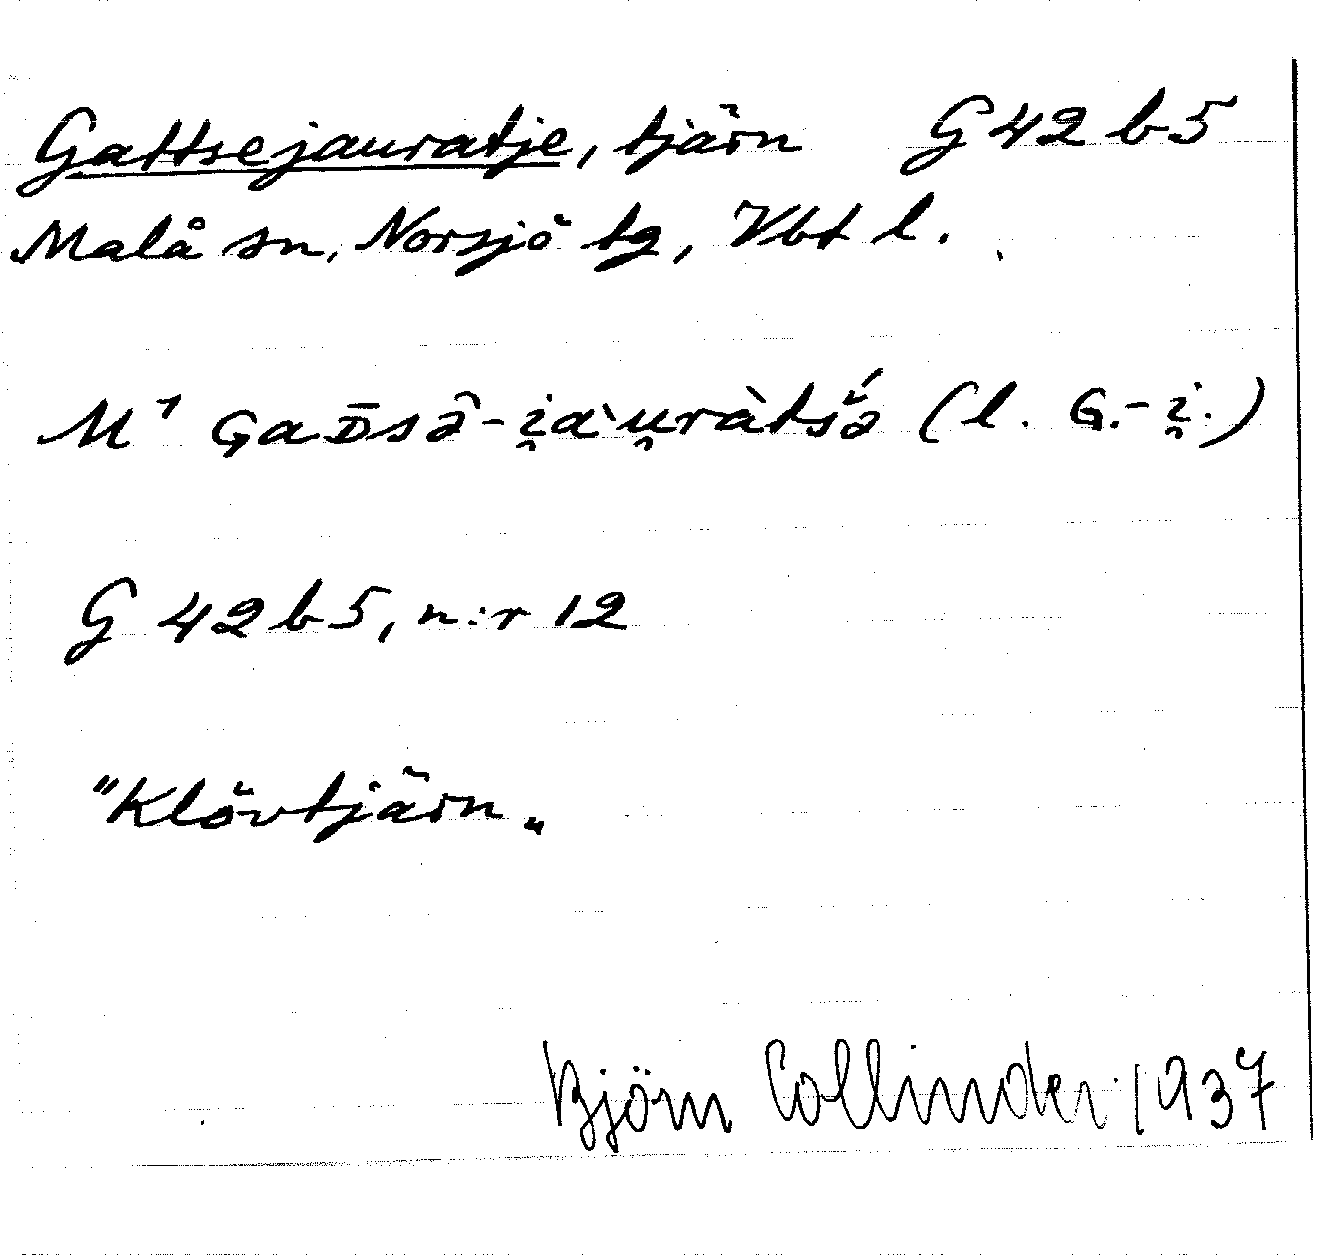 Gattsejauratje, tjärn G 42 b 5
Malå sn, Norsjö tg, Vbt l.
M¹ G̣aD̄sə̂-i̯a`u̯ràtsə̌́ (l. G.-i̯.)
G 42 b 5, n:r 12
"Klövtjärn„
Björn Collinder 1937